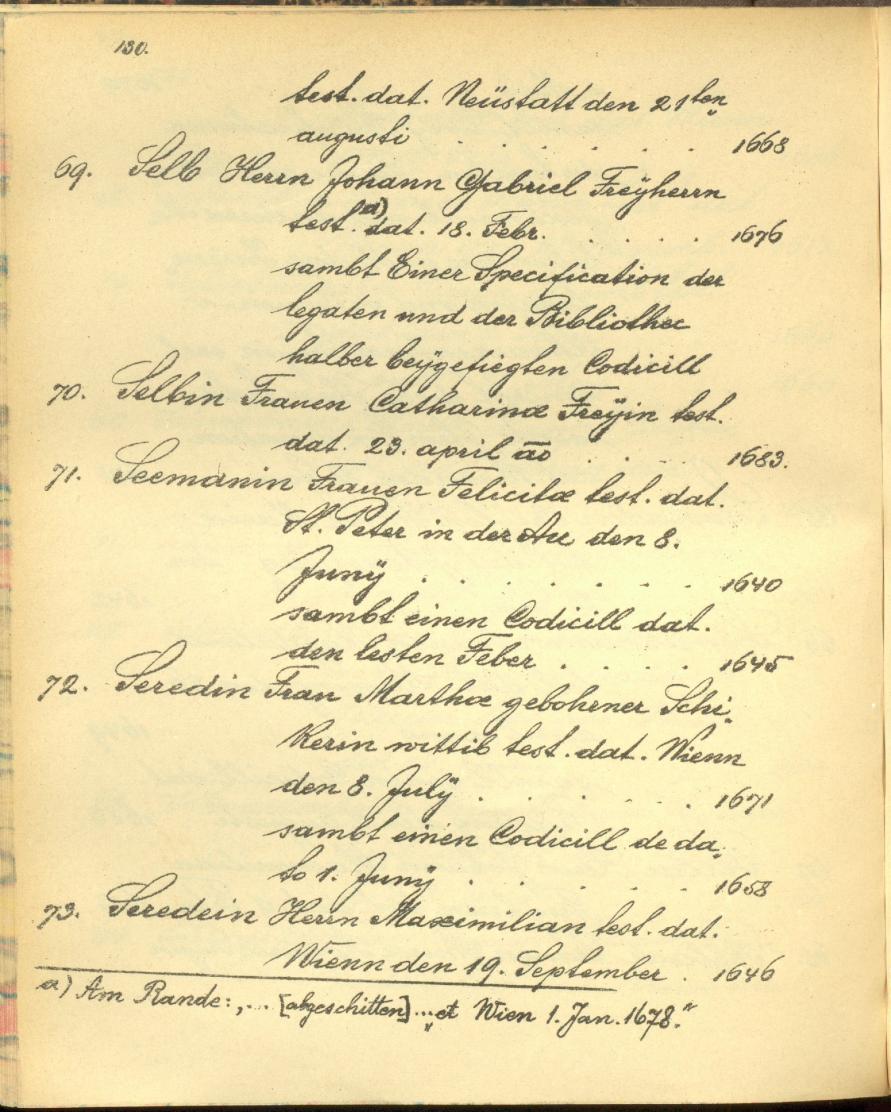 130.
test. dat. Neüstatt den 21ten
augusti . . . . . . 1668
69. Selb Herrn Johann Gabriel Freÿherrn
test. a) dat. 18. Febr. . . . . 1676
sambt Einer Specification der
legaten und der Bibliothec
halber beÿgefiegten Codicill
70. Selbin Frauen Catharinæ Freÿin test.
dat. 23. april ao . . . . 1683.
71. Seemanin Frauen Felicitæ test. dat.
St. Peter in der Au den 8.
Junÿ . . . . . . . 1640
sambt einen Codicill dat.
den lesten Feber . . . . 1645
72. Seredin Frau Marthæ gebohrner Schi„
kerin wittib test. dat. Wienn
den 8. Julÿ . . . . . 1671
sambt einen Codicill de da„
to 1. Junÿ . . . . . 1658
73. Seredein Herrn Maximilian test. dat.
Wienn den 19. September . 1646
a) Am Rande: „... [abgeschitten] ... et Wien 1. Jan. 1678."